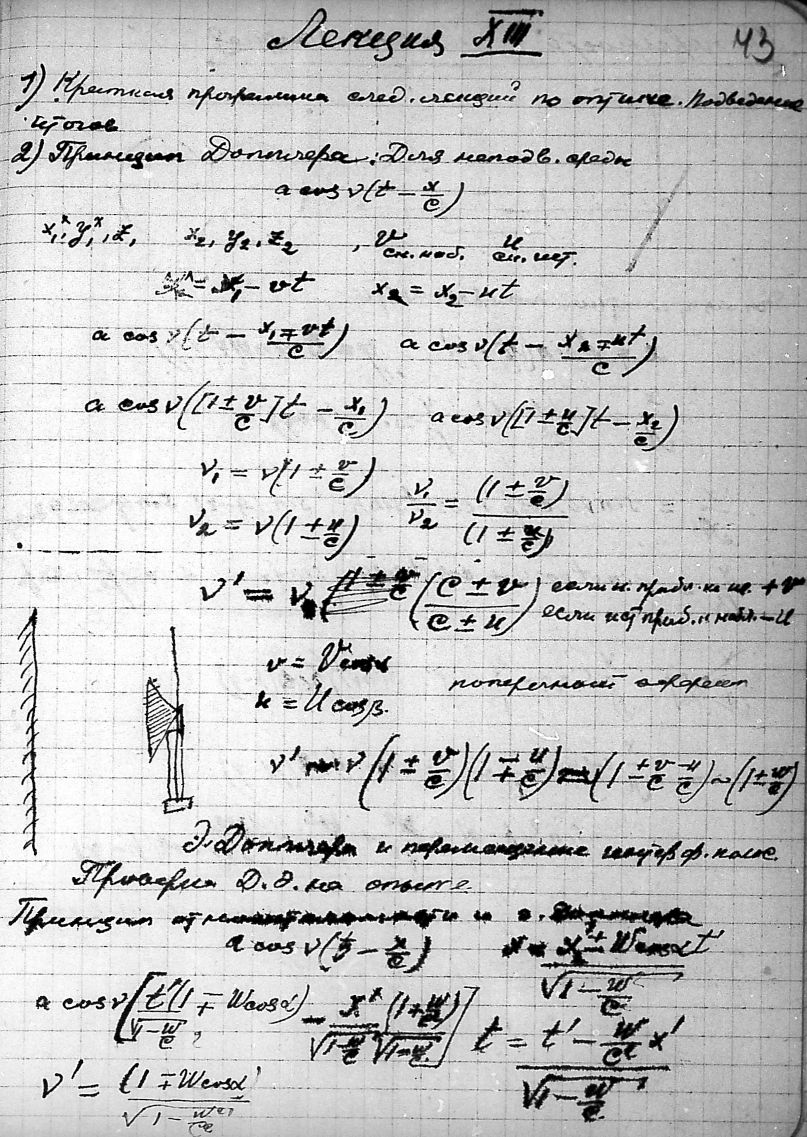 Лекция XIII
43
1) Краткая программа след. лекций по оптике. Подведение
итогов
2) Принцип Допплера: Для неподв. среды
a cos ν(t − x/c)
x₁ˣ, y₁ˣ, z₁   x₂, y₂, z₂ , v ск. наб.   u ск. ист.
= x₁ − vt   x₂ = x₂ − ut
a cos ν(t − (x₁ ∓ vt)/c)   a cos ν(t − (x₂ ∓ ut)/c)
a cos ν([1 ± v/c]t − x₁/c)   a cos ν([1 ± u/c]t − x₂/c)
ν₁ = ν(1 ± v/c)   ν₁/ν₂ = (1 ± v/c)/(1 ± u/c)
ν₂ = ν(1 ± u/c)
ν' = ν ((c ± v)/(c ± u)) если н. прибл. к ис. + v
если ист. приб. к набл. − u
v = V cos α
u = U cos β.   поперечный эффект
ν' ~ ν(1 ± v/c)(1 ∓ u/c) = (1 ± v/c − u/c) ~ (1 ± w/c)
Э. Допплера и перемещение интерф. полос.
Проверка Д. э. на опыте
Принцип относительности и э. Допплера
a cos ν(t − x/c)
a cos ν[t''(1 ∓ W cos α)/√(1 − w/c) − xˣ(1 + w/c)/√(1 − w/c)√(1 − w/c)]   t = (t' − w/c² x')/√(1 − w/c)
ν' = (1 ∓ W cos α)/√(1 − w²/c²)